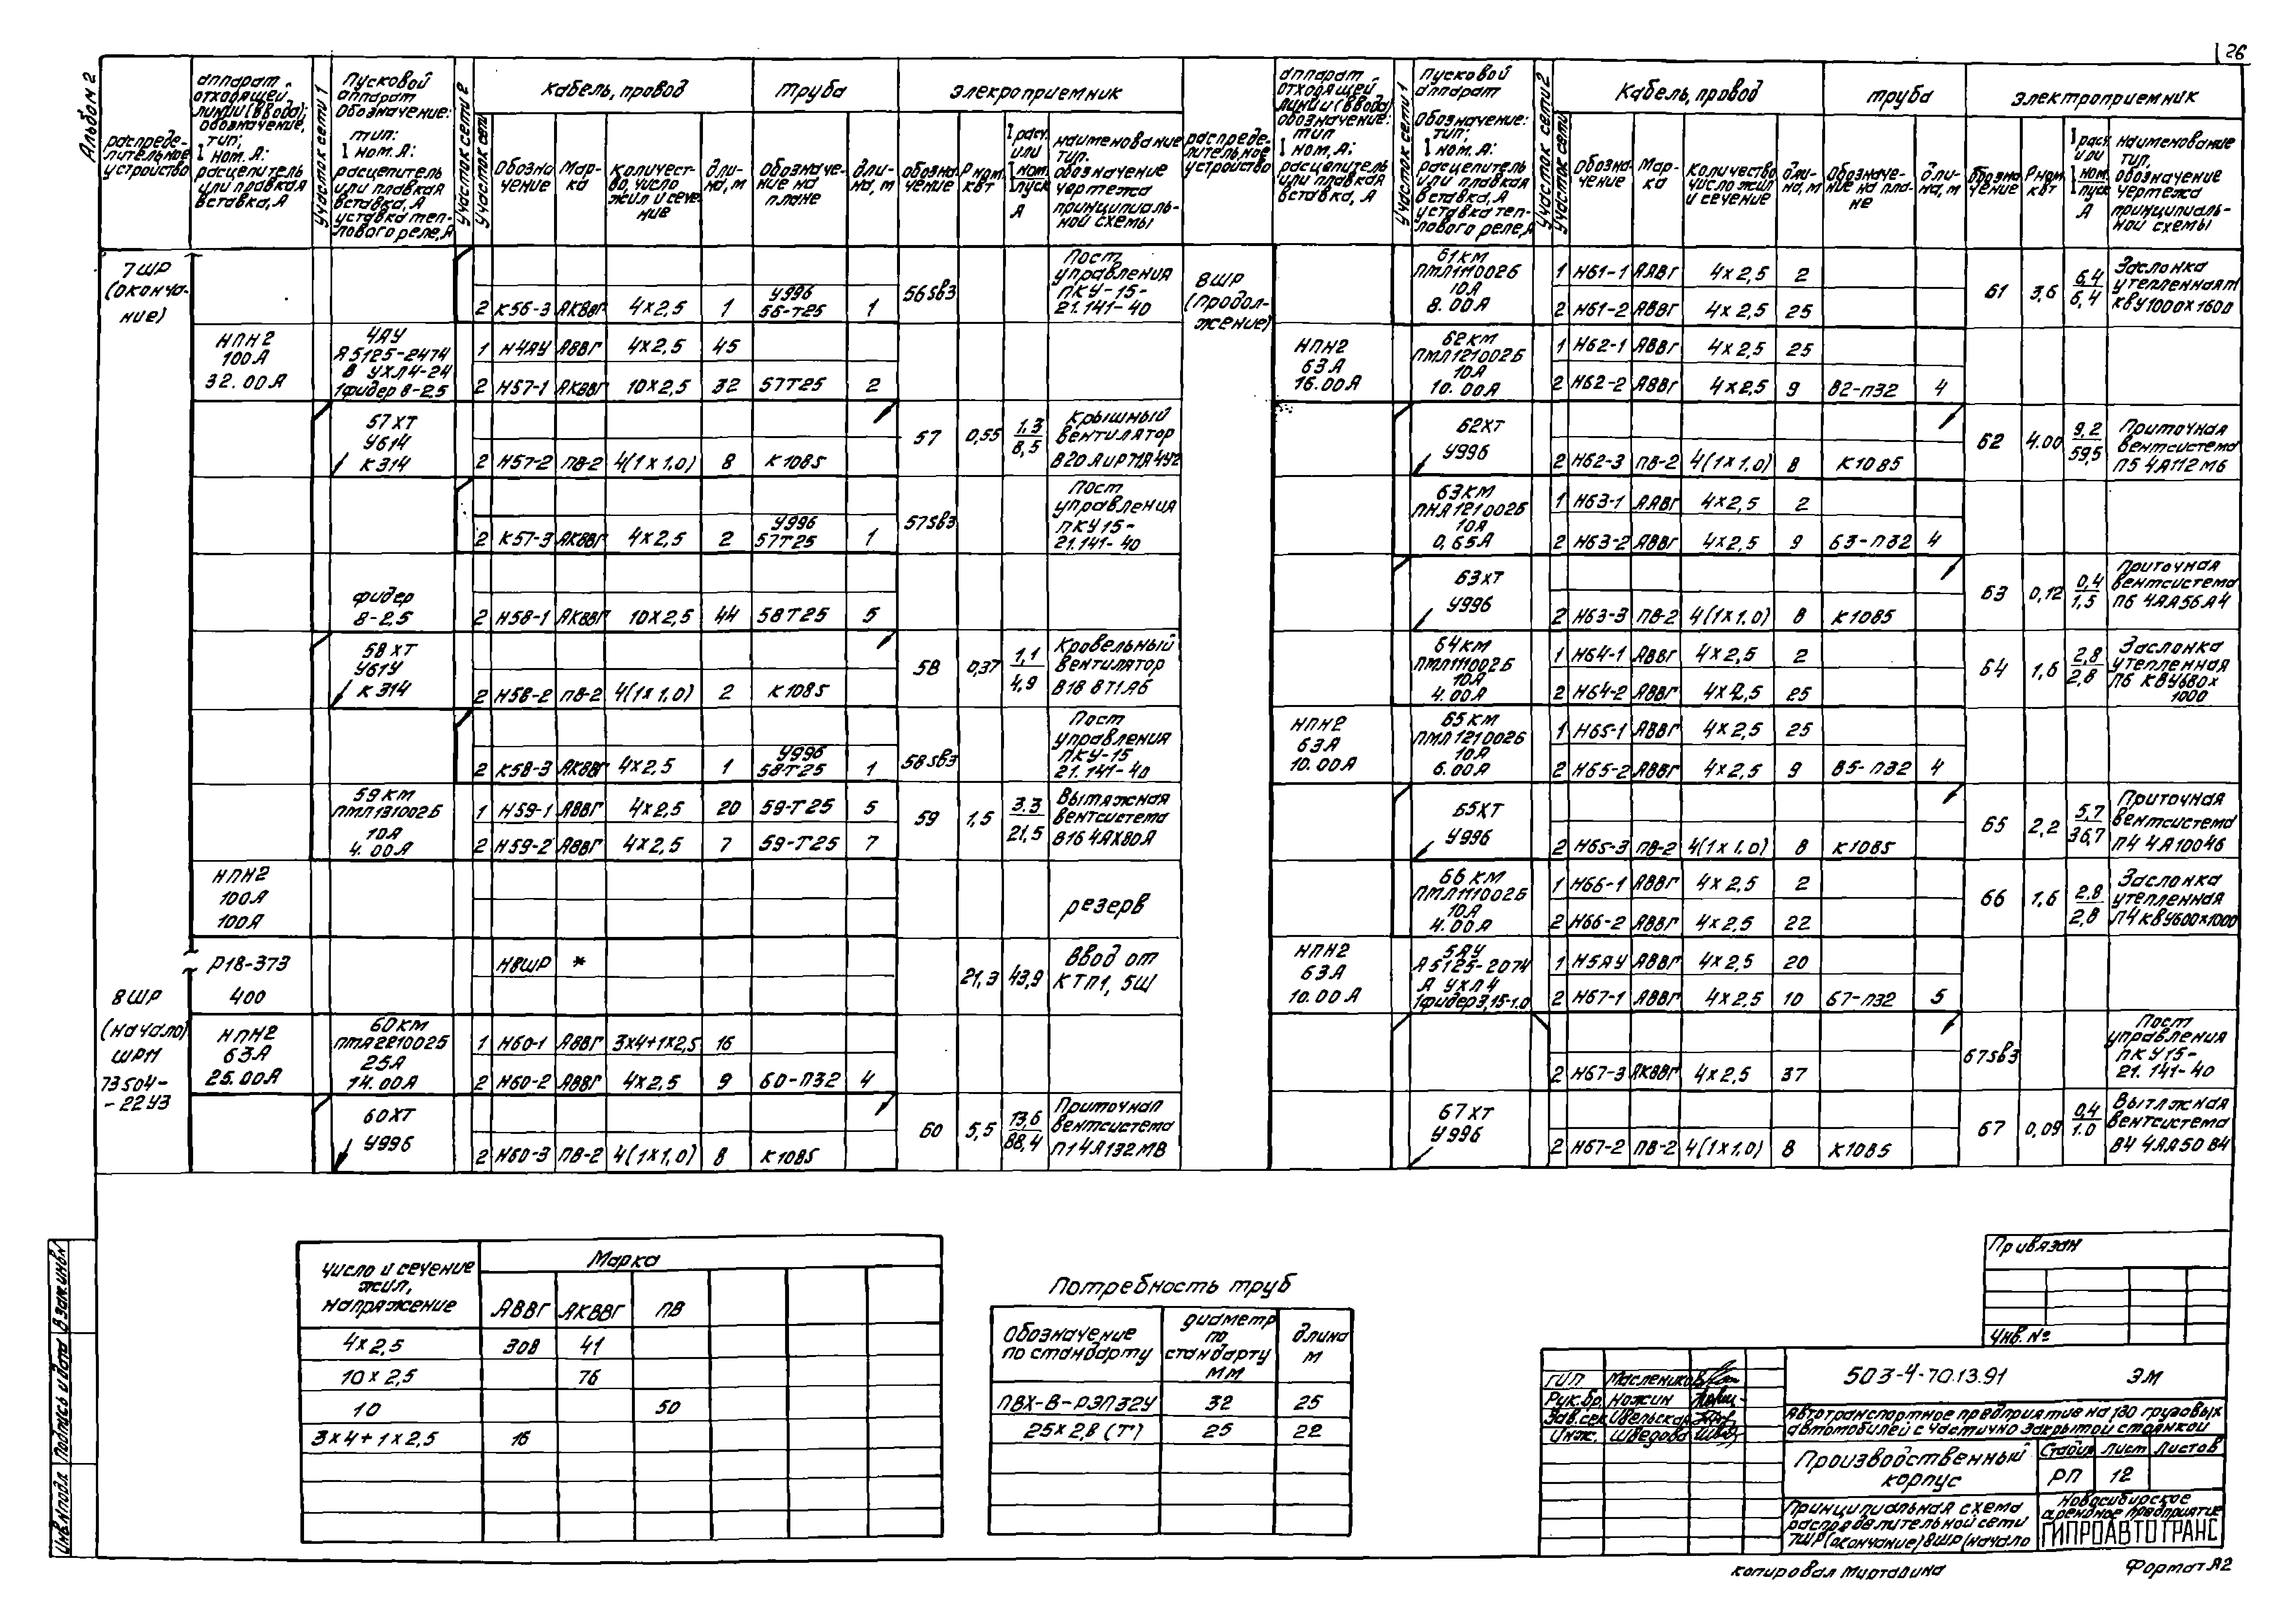 26
Альбом 2
Распределительное устройство
Аппарат отходящей линии (ввода); обозначение, тип; I ном. А: расцепитель или плавкая вставка, А
Участок сети 1
Пусковой аппарат Обозначение: тип; I ном. А: расцепитель или плавкая вставка, А уставка теплового реле, А
Участок сети 2
Участок сети
Кабель, провод
Обозначение
Марка
Количество, число жил и сечение
Длина, м
Труба
Обозначение на плане
Длина, м
Элекроприемник
Обозначение
Р ном. кВт
I расч. или I ном. I пуск А
Наименование тип, обозначение чертежа принципиальной схемы
7ШР (окончание)
2 К56-3 АКВВГ 4х2,5 1 У996 56-Т25 1 56SB3 Пост управления ПКУ-15-21.141-40
НПН2 100А 32.00А 4АУ Я5125-2474 В УХЛ4-24 1фидер 8-2.5
1 Н4АУ АВВГ 4х2,5 45
2 Н57-1 АКВВГ 10х2,5 32 57Т25 2
57ХТ У614 К314
2 Н57-2 ПВ-2 4(1х1,0) 8 К1085 57 0,55 1,3 8,5 Крышный вентилятор
2 К57-3 АКВВГ 4х2,5 2 У996 57Т25 1 57SB3 Пост управления ПКУ15-21.141-40
фидер 8-2,5
2 Н58-1 АКВВГ 10х2,5 44 58Т25 5
58ХТ У614 К314
2 Н58-2 ПВ-2 4(1х1,0) 2 К1085 58 0,37 1,1 4,9 Кровельный вентилятор В18 8Т1А6
2 К58-3 АКВВГ 4х2,5 1 У996 58Т25 1 58SB3 Пост управления ПКУ-15 21.141-40
59КМ ПМЛ131002Б 10А 4.00А
1 Н59-1 АВВГ 4х2,5 20 59-Т25 5
2 Н59-2 АВВГ 4х2,5 7 59-Т25 7 59 1,5 3.3 21,5 Вытяжная вентсистема В16 4АХ80А
НПН2 100А 100А резерв
8ШР (начало) ШР11 73504-22У3
Р18-373 400 Н8ШР * 21,3 43,9 Ввод от КТП1, 5Щ
НПН2 63А 25.00А 60КМ ПМЛ221002Б 25А 14.00А
1 Н60-1 АВВГ 3х4+1х2,5 16
2 Н60-2 АВВГ 4х2,5 9 60-П32 4
60ХТ У996
2 Н60-3 ПВ-2 4(1х1,0) 8 К1085 60 5,5 13,6 88,4 Приточная вентсистема П1 4А132М8
Распределительное устройство
Аппарат отходящей линии (ввода) обозначение: тип I ном, А; расцепитель или плавкая вставка, А
Участок сети 1
Пусковой аппарат Обозначение: тип; I ном. А: расцепитель или плавкая вставка, А уставка теплового реле, А
Участок сети 2
Участок сети
Кабель, провод
Обозначение
Марка
Количество число жил и сечение
Длина, м
Труба
Обозначение на плане
Длина, м
Электроприемник
Обозначение
Р ном. кВт
I расч. или I ном. I пуск А
Наименование тип, обозначение чертежа принципиальной схемы
8ШР (продолжение)
61КМ ПМЛ111002Б 10А 8.00А
1 Н61-1 АВВГ 4х2,5 2
2 Н61-2 АВВГ 4х2,5 25 61 3,6 6,4 6,4 Заслонка утепленная П1 КВУ1000х1600
НПН2 63А 16.00А 62КМ ПМЛ121002Б 10А 10.00А
1 Н62-1 АВВГ 4х2,5 25
2 Н62-2 АВВГ 4х2,5 9 62-П32 4
62ХТ У996
2 Н62-3 ПВ-2 4(1х1,0) 8 К1085 62 4.00 9,2 59,5 Приточная вентсистема П5 4А112М6
63КМ ПМЛ121002Б 10А 0,65А
1 Н63-1 АВВГ 4х2,5 2
2 Н63-2 АВВГ 4х2,5 9 63-П32 4
63ХТ У996
2 Н63-3 ПВ-2 4(1х1,0) 8 К1085 63 0,12 0,4 1,5 Приточная вентсистема П6 4АА56А4
64КМ ПМЛ111002Б 10А 4.00А
1 Н64-1 АВВГ 4х2,5 2
2 Н64-2 АВВГ 4х2,5 25 64 1,6 2,8 2,8 Заслонка утепленная П5 КВУ680х1000
НПН2 63А 10.00А 65КМ ПМЛ121002Б 10А 6.00А
1 Н65-1 АВВГ 4х2,5 25
2 Н65-2 АВВГ 4х2,5 9 65-П32 4
65ХТ У996
2 Н65-3 ПВ-2 4(1х1,0) 8 К1085 65 2,2 5,7 36,7 Приточная вентсистема П4 4А100Л6
66КМ ПМЛ111002Б 10А 4.00А
1 Н66-1 АВВГ 4х2,5 2
2 Н66-2 АВВГ 4х2,5 22 66 1,6 2,8 2,8 Заслонка утепленная П4 КВУ600х1000
НПН2 63А 10.00А 5АУ Я5125-2074 А УХЛ4 1фидер3,15-1.0
1 Н5АУ АВВГ 4х2,5 20
2 Н67-1 АВВГ 4х2,5 10 67-П32 5
2 Н67-3 АКВВГ 4х2,5 37 67SB3 Пост управления ПКУ15-21.141-40
67ХТ У996
2 Н67-2 ПВ-2 4(1х1,0) 8 К1085 67 0,09 0,4 1.0 Вытяжная вентсистема В4 4АА50В4
Число и сечение жил, напряжение
Марка
АВВГ АКВВГ ПВ
4х2,5 308 41
10х2,5 76
10 50
3х4+1х2,5 16
Потребность труб
Обозначение по стандарту
Диаметр по стандарту мм
Длина м
ПВХ-В-РЭП32У 32 25
25х2,8 (Т) 25 22
Привязан
Инв. №
ГИП Маслеников
Рук.бр. Ножин
Зав.сек Увельская
Инж. Шведова
503-4-70.13.91 ЭМ
Автотранспортное предприятие на 130 грузовых
автомобилей с частично закрытой стоянкой
Производственный корпус
Стадия Лист Листов
РП 12
Принципиальная схема
распределительной сети
7ШР(окончание) 8ШР(начало
Новосибирское
арендное предприятие
ГИПРОАВТОТРАНС
Инв.№подл. Подпись и дата Взам.инв№
Копировал Формат А2